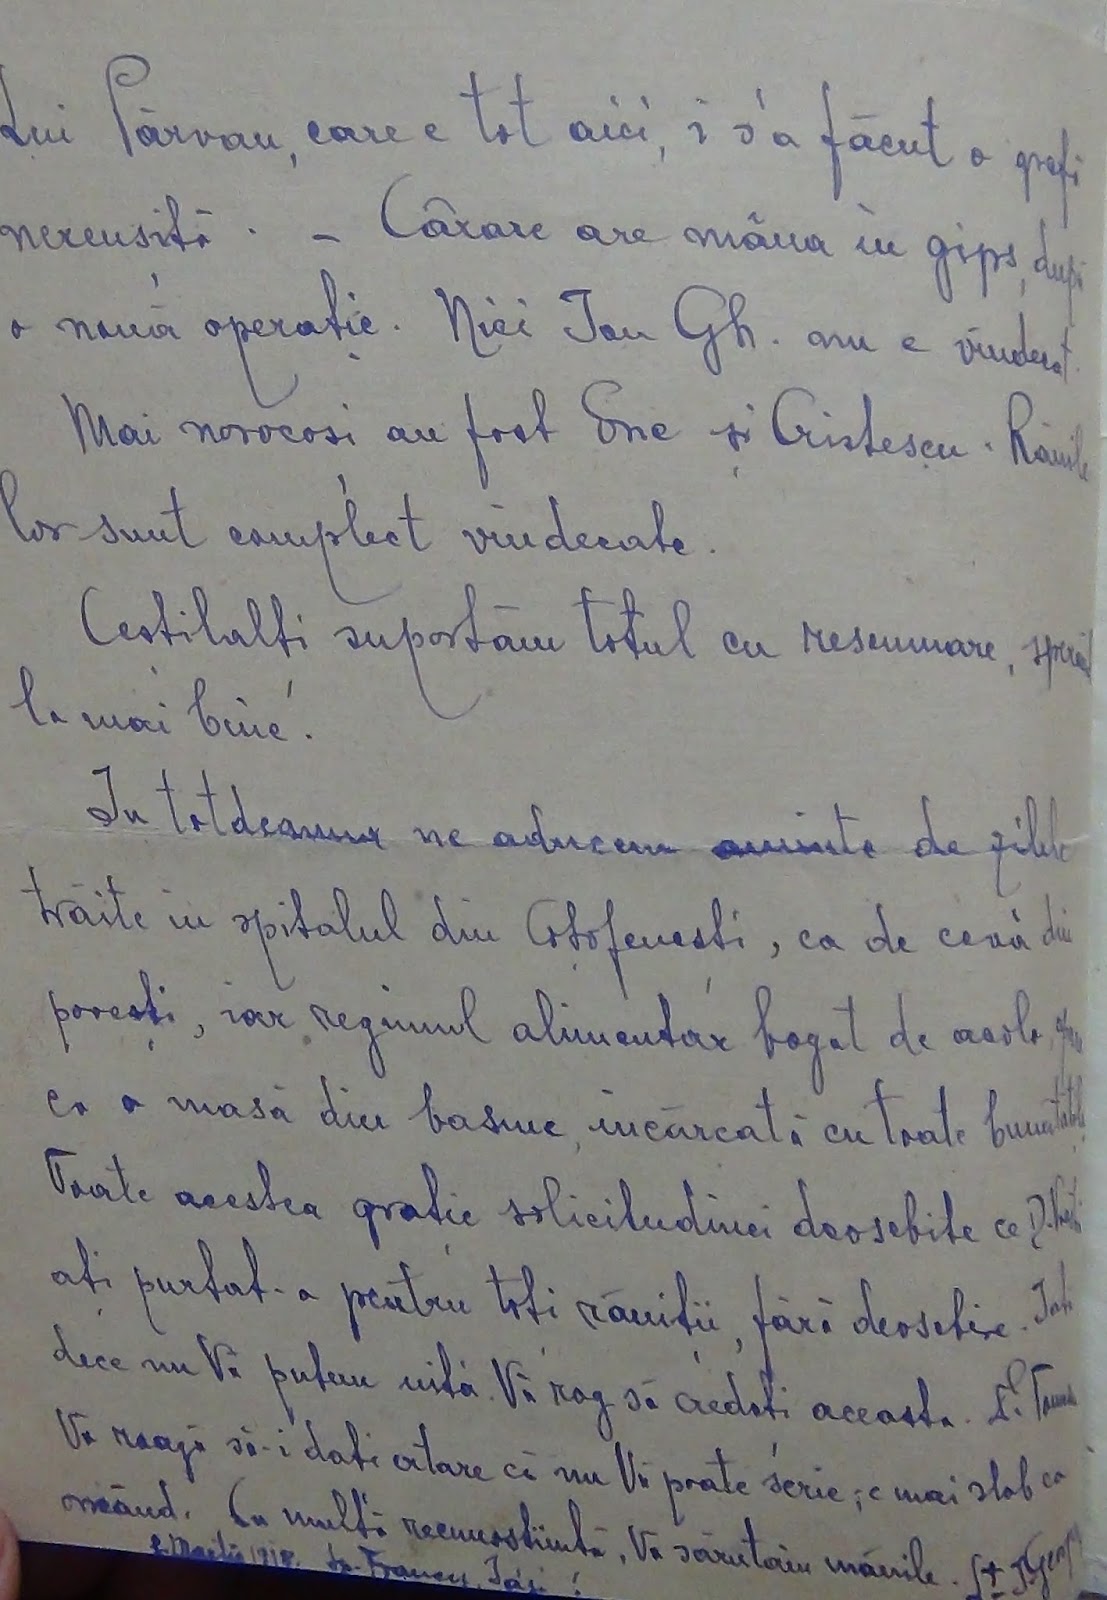 Lui Pârvan, care e tot aici, i s'a făcut o grefă
nereusită. – Cârare are mâna în gips, după
o nouă operație. Nici Ion Gh. nu e vindecat.
Mai norocosi au fost Ene și Cristescu. Rănile
lor sunt complect vindecate.
Cestilalti suportăm totul cu resemnare, sperând
la mai bine.
In totdeauna ne aducem aminte de zilele
trăite in spitalul din Coțofenesti, ca de ceva din
povești, iar regimul alimentar bogat de acolo,
ca o masă din basme, incărcată cu toate bunătățile
Toate acestea grație solicitudinei deosebite ce D.
ați purtat-o pentru toti răniții, fără deosebire. Iată
dece nu Vă putem uita. Vă rog să credeti aceasta.
Vă roagă să-i dati ertare că nu Vă poate scrie; e mai slab ca
oricând. Cu multă recunostiință, Vă sărutăm mânile.
2 Martie 1918. Iași